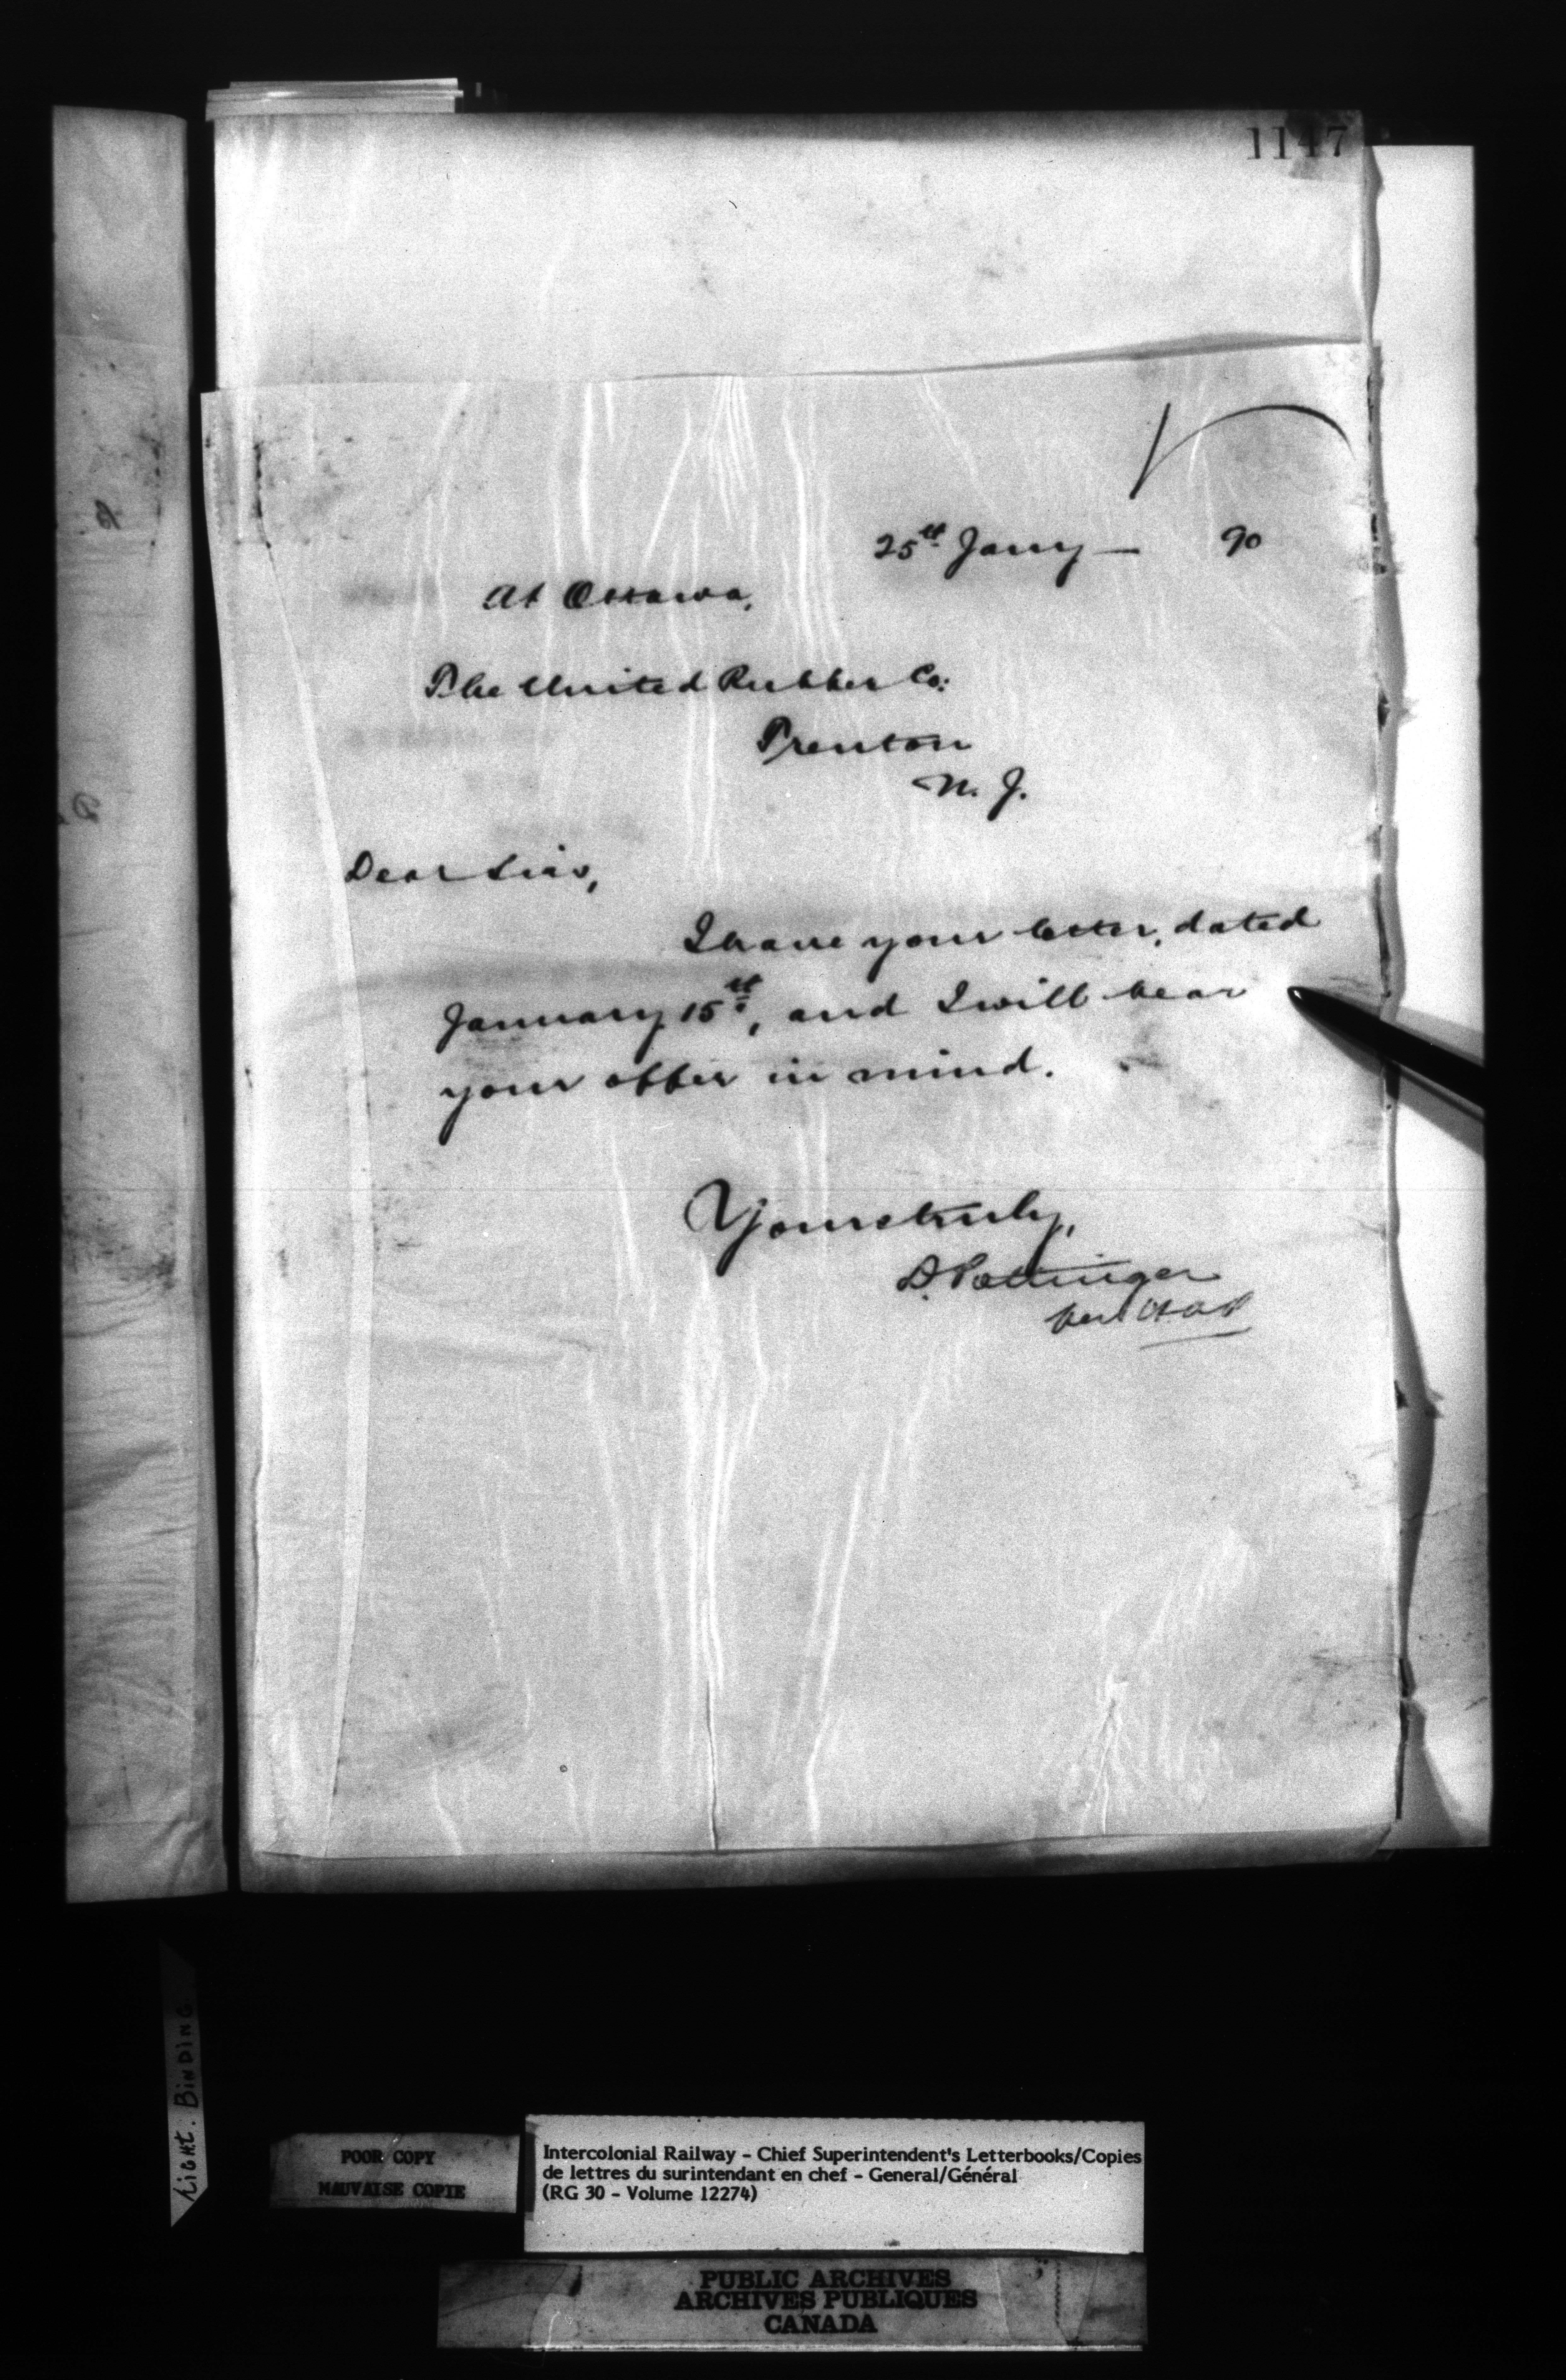 1147
25th Jany — 90
At Ottawa,
The United Rubber Co:
Trenton
N. J.
Dear Sirs,
I have your letter, dated
January 15th, and I will bear
your offer in mind.
Yours truly,
D. Pottinger
per
LIGHT. BINDING.
POOR COPY
MAUVAISE COPIE
Intercolonial Railway - Chief Superintendent's Letterbooks/Copies
de lettres du surintendant en chef - General/Général
(RG 30 - Volume 12274)
PUBLIC ARCHIVES
ARCHIVES PUBLIQUES
CANADA